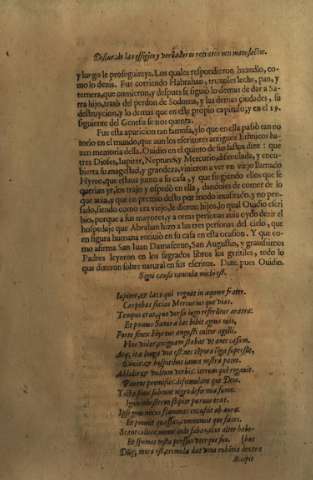 Discur. de las effigies y verdaderos retratos non manufactos.
y luego le proseguireys. Los quales respondieron haz
mo lo dezis. Fue corriendo Habrahan, truxoles leche, pan, y
ternera, que comieron, y despues se siguio lo demas de dar a Sa-
rra hijo, trato del perdon de Sodoma, y las demas ciudades, su
destruycion, y lo demas que en esse propio capitulo, y en el 19.
siguiente del Genesis se nos quenta.
Fue esta aparicion tan famosa, y lo que en ella passò tan no-
torio en el mundo, que aun los escritores antiguos Ethnicos haz
nen memoria della. Ouidio en el quinto de sus fastos dize: que
tres Dioses, Iupiter, Neptuno, y Mercurio, dissimulada, y encu-
bierta su magestad, y grandeza, vinieron a ver vn viejo llamado
Hyreo, que estaua junto a su casa, y que fingiendo ellos que se
querian yr, los traxo y ospedò en ella, dandoles de comer de lo
que auia, y que en premio desto por modo inusitado, y no pen-
sado, siendo como era viejo, le dieron hijo, lo qual Ouidio escri-
bio, porque a sus mayores, y a otras personas auia oydo dezir el
hospedaje que Abrahan hizo a las tres personas del cielo, que
en figura humana recibio en su casa en esta ocasion. Y que co-
mo afirma San Iuan Damasceno, San Augustin, y grauissimos
Padres leyeron en los sagrados libros los gentiles, todo lo
que dixeron sobre natural en sus escritos. Dize pues Ouidio.
Signi causa canenda mihi est.
Iupiter, & lato qui regnat in aequore frater,
Carpebat socias Mercurius que vias.
Tempus erat, quo versa iugo referuntur aratra.
Et pronus Satura lac bibit agnus ouis,
Forte senex Hyrieus angusti cultor agelli,
Hos videt, exiguam stabat vt ante casam.
Atq; ita longa via est, nec tempora longa supersunt,
Dixit, & hospitibus ianua nostra patet.
Addidit & vultum verbis: iterum que rogauit.
Parent promissis, dissimulant que Deos.
Tecta senis subeunt nigro deformia fumo.
Ignis in hesterno stipite paruus erat.
Ipse genu nixus flammas exsuscitat aura:
Et promit quassas, comminuit que faces.
Stant calices: minor inde fabas, olus alter habe-
Et spumat testa pressus vterque sua. (bat
Dum, mora est, tremula dat vina rubentia dextra
Accipit